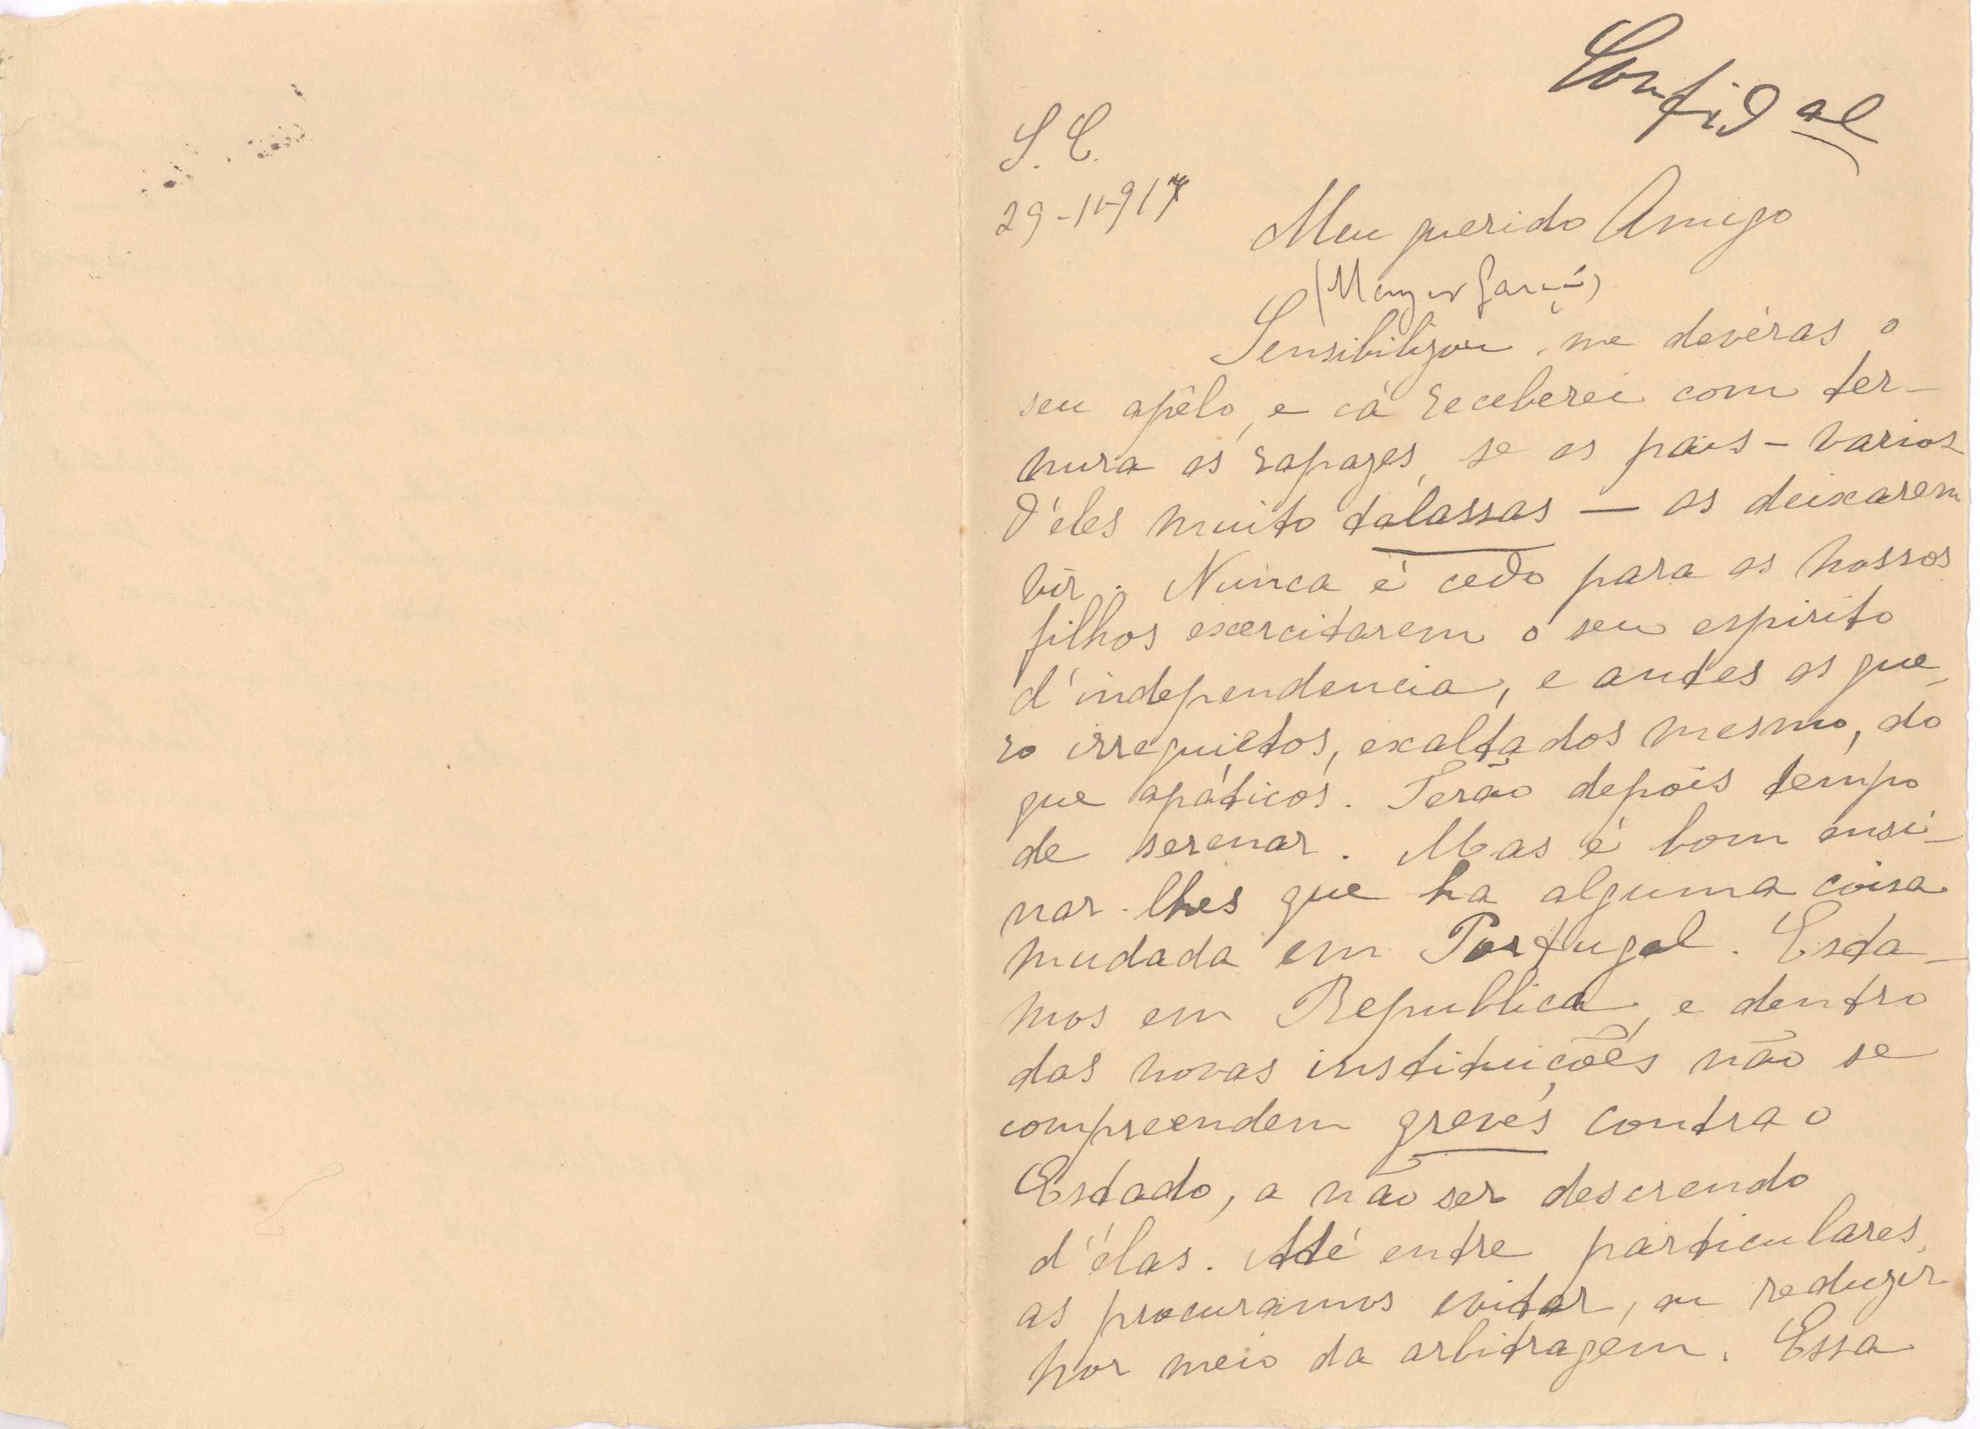 Confidal
S. C.
29-11-917
Meu querido Amigo
Sensibilizou-me devéras o
seu apêlo, e cá receberei com ter-
nura os rapazes, se os pais - varios
d'eles muito talassas — os deixarem
vir. Nunca é cedo para os nossos
filhos exercitarem o seu espirito
d'independencia, e antes os que-
ro irrequietos, exaltados mesmo, do
que apáticos. Terão depois tempo
de serenar. Mas é bom ensi-
nar-lhes que ha alguma coisa
mudada em Portugal. Esta-
mos em Republica, e dentro
das novas instituições não se
compreendem greves contra o
Estado, a não ser descrendo
d'élas. Até entre particulares,
as procuramos evitar, ou reduzir
por meio da arbitragem. Essa